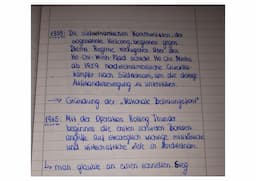 1959: Die südvietnamesischen Kommunisten, der
sogenannte Vietcong, beginnen gegen
Diems Regime vorzugehen. Über den
Ho-Chi-Minh-Pfad schickt Ho Chi Minhs
ab 1959 nordvietnamesische Guerilla-
kämpfer nach Südvietnam, um die dortige
Aufstandsbewegung zu unterstützen.
→ Gründung der "Nationale Befreiungsfront"
1965: Mit der Operation Rolling Thunder
beginnen die ersten schweren Bomben-
angriffe auf strategisch wichtige militärische
und wirtschaftliche Ziele in Nordvietnam.
↳ man glaubte an einen schnellen Sieg